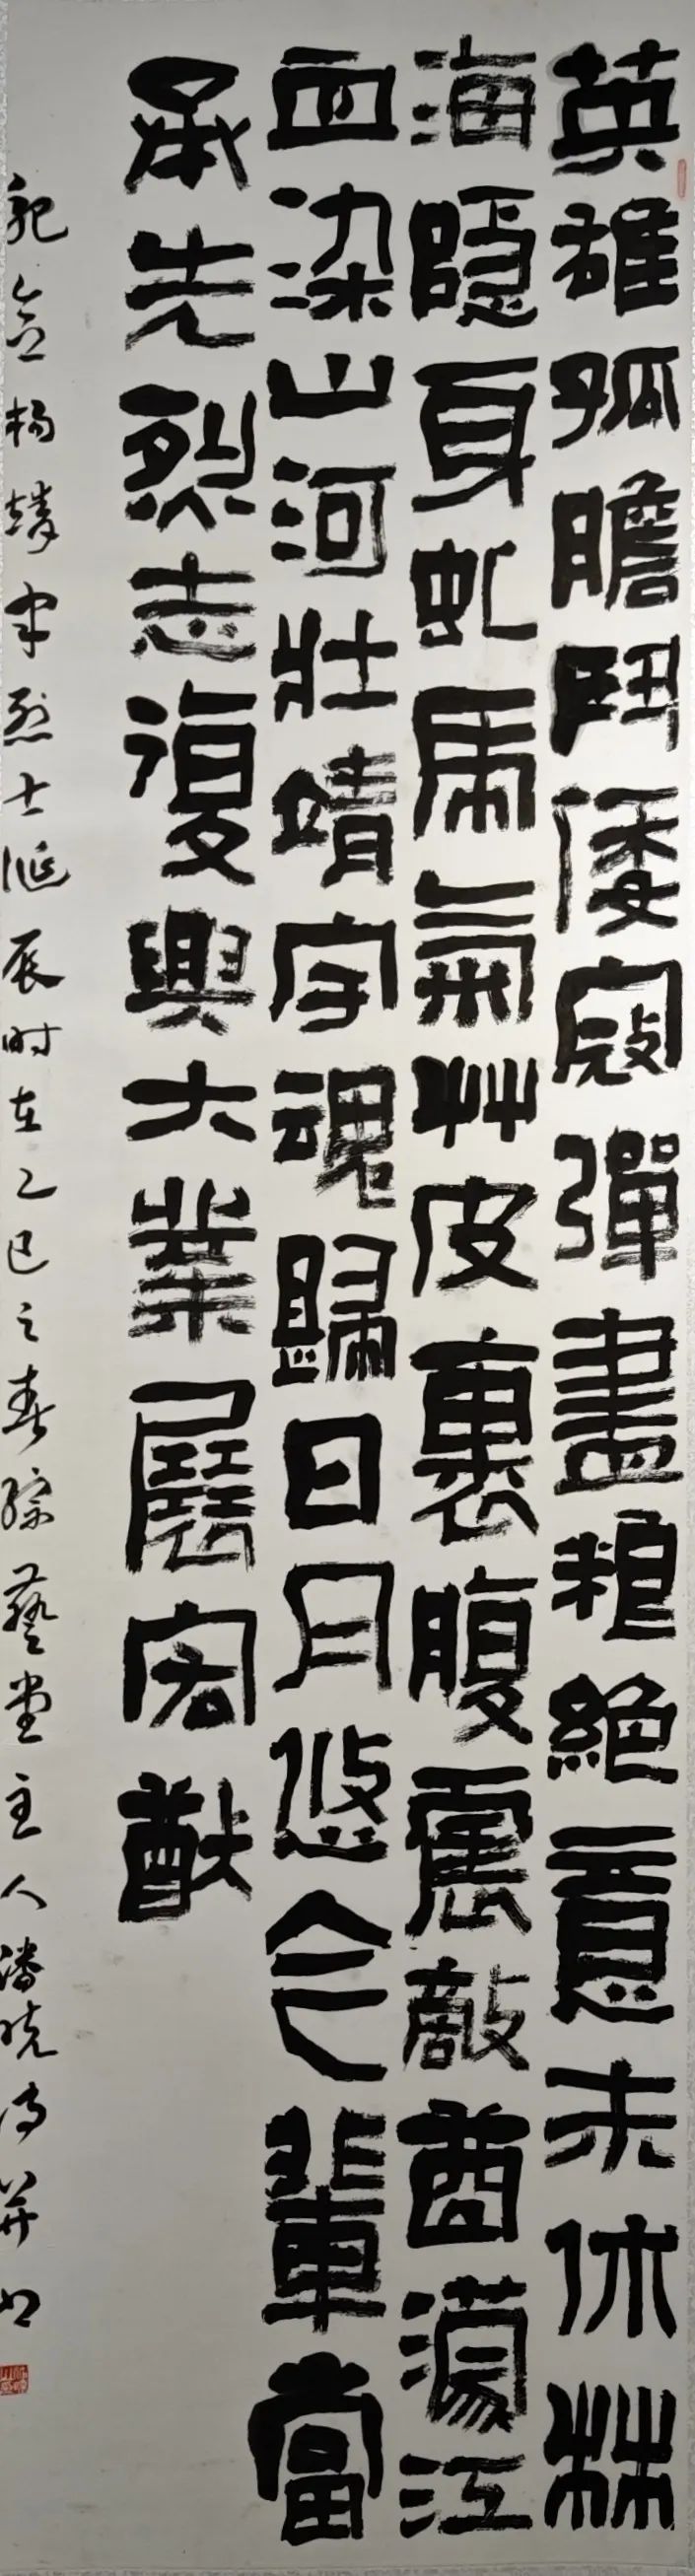 英雄孤膽鬥倭寇彈盡粮絕意未休林
海隱身虬馬氣艸皮裹腹震敵酋蕩江
血染山河壯靖宇魂歸日月悠今輩當
承先烈志復興大業展宏猷
紀念楊靖宇烈士誕辰时在乙巳之春綜藝堂主人潘曉